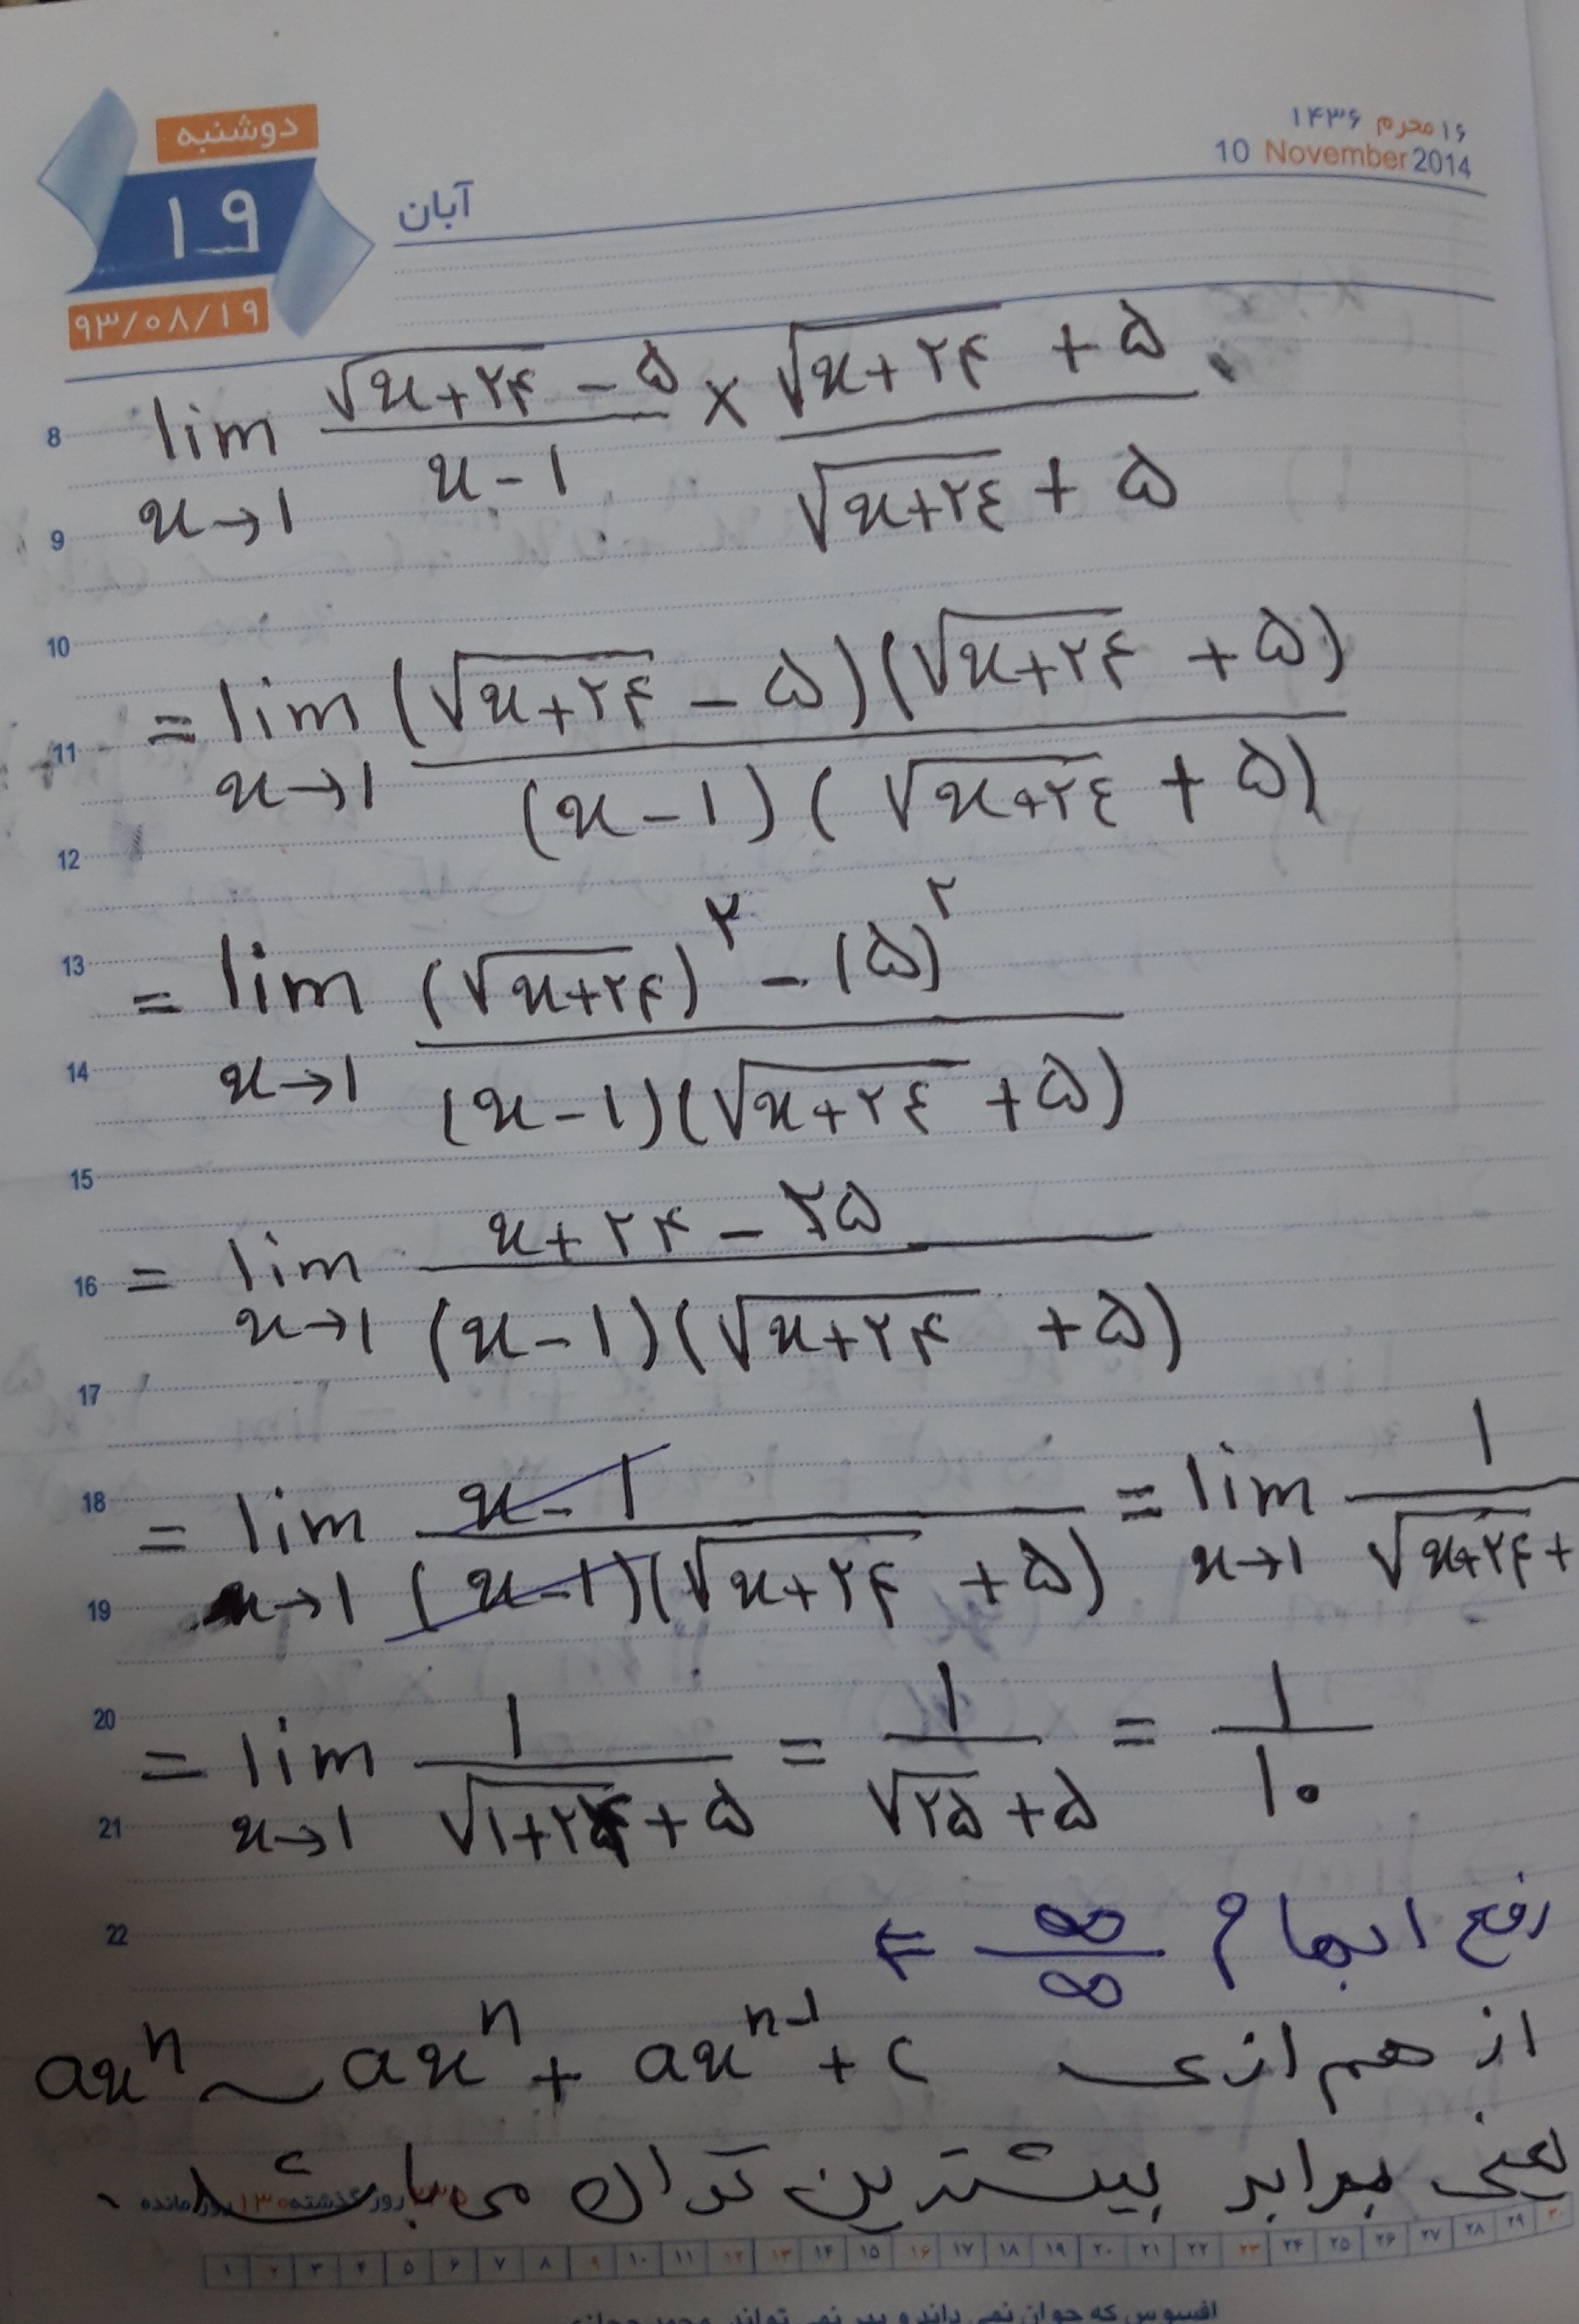 دوشنبه
۱۹
۹۳/۰۸/۱۹
آبان
۱۶ محرم ۱۴۳۶
10 November 2014
8
lim x→1 (√(x+۲۴) - ۵)/(x-1) × (√(x+۲۴) + ۵)/(√(x+۲٤) + ۵)
9
10
= lim x→1 (√(x+۲۴) - ۵)(√(x+۲۴) + ۵) / (x-1)(√(x+۲٤) + ۵)
11
12
13
= lim x→1 ((√(x+۲۴))^۲ - (۵)^۲) / (x-1)(√(x+۲٤) + ۵)
14
15
= lim x→1 (x+۲۴ - ۲۵) / (x-1)(√(x+۲۴) + ۵)
16
17
18
= lim x→1 (x-1) / (x-1)(√(x+۲۴) + ۵) = lim x→1 1 / √(x+۲۴) +
19
20
= lim x→1 1 / (√(1+۲۴) + ۵) = 1 / (√۲۵ + ۵) = ۱/۱۰
21
22
رفع ابهام ∞/∞ ⇐
از هم ارزی ax^n ~ ax^n + ax^(n-1) + c
یعنی برابر بیشترین توان می باشد.
روز گذشته ۱۳۰ روز مانده
۱ ۲ ۳ ۴ ۵ ۶ ۷ ۸ ۹ ۱۰ ۱۱ ۱۲ ۱۳ ۱۴ ۱۵ ۱۶ ۱۷ ۱۸ ۱۹ ۲۰ ۲۱ ۲۲ ۲۳ ۲۴ ۲۵ ۲۶ ۲۷ ۲۸ ۲۹ ۳۰
افسوس که جوان نمی داند و پیر نمی تواند.